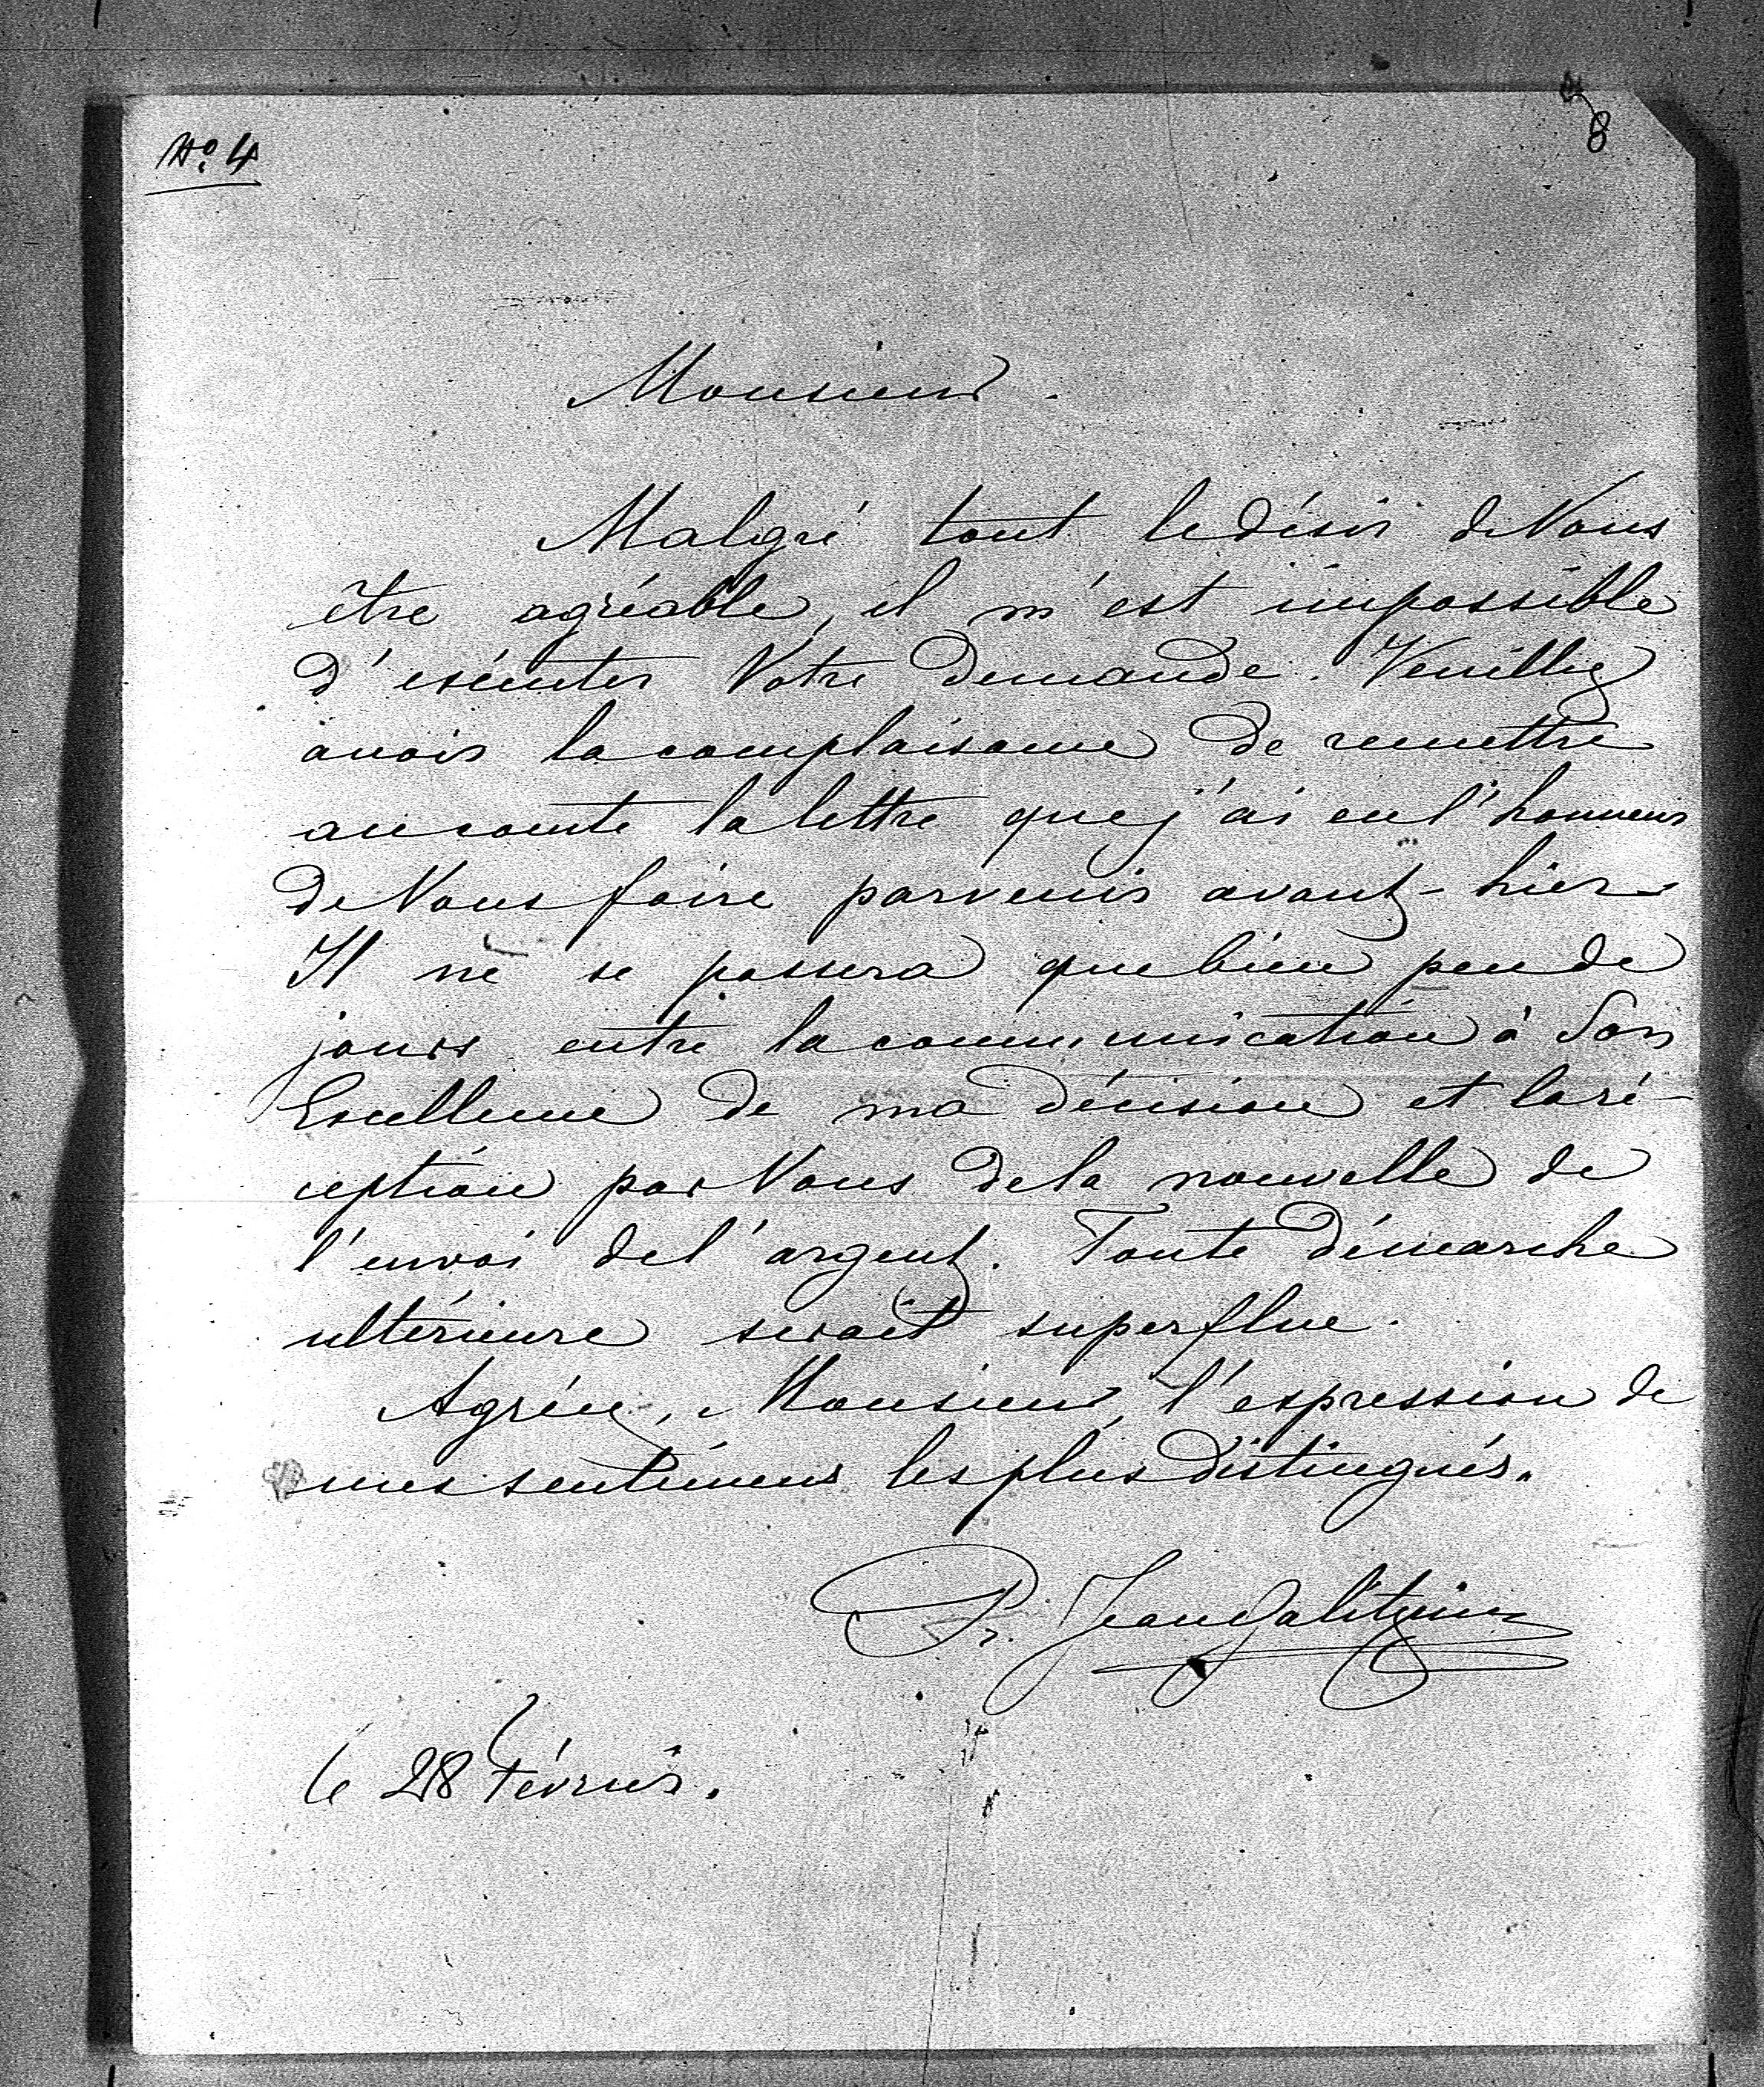 No. 4
8
Monsieur.
Malgré tout le désir de Vous
être agréable, il m'est impossible
d'exécuter Votre demande. Veuillez
avoir la complaisance de remettre
au comte la lettre que j'ai eu l'honneur
de Vous faire parvenir avant-hier.
Il ne se passera que bien peu de
jours entre la communication à Son
Excellence de ma décision et la ré-
ception par Vous de la nouvelle de
l'envoi de l'argent. Toute démarche
ultérieure serait superflue.
Agréez, Monsieur, l'expression de
mes sentimens les plus distingués.
Pr. Jean Galitzin
le 28 Février.